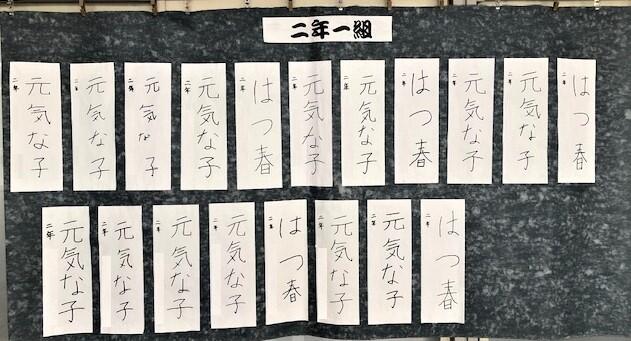 二年一組
はつ春
二年
元気な子
二年
元気な子
二年
はつ春
二年
元気な子
二年
元気な子
二年
はつ春
二年
元気な子
二年
元気な子
二年
元気な子
二年
元気な子
二年
はつ春
二年
元気な子
二年
元気な子
二年
はつ春
二年
元気な子
二年
元気な子
二年
元気な子
二年
元気な子
二年